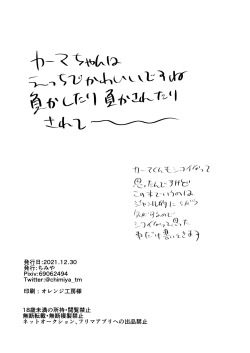 カーマちゃんは
えっちでかわいいですね
負かしたり負かされたり
されて〜
カーマくんもシコいなって
思ったんですけど
この本でいうのは
ジャンル的に
シコいなって思った
気だけ書いときます
発行日:2021.12.30
発行:ちみや
Pixiv:69062494
Twitter:@chimiya_tm
印刷:オレンジ工房様
18歳未満の所持・閲覧禁止
無断転載・無断複製禁止
ネットオークション、フリマアプリへの出品禁止